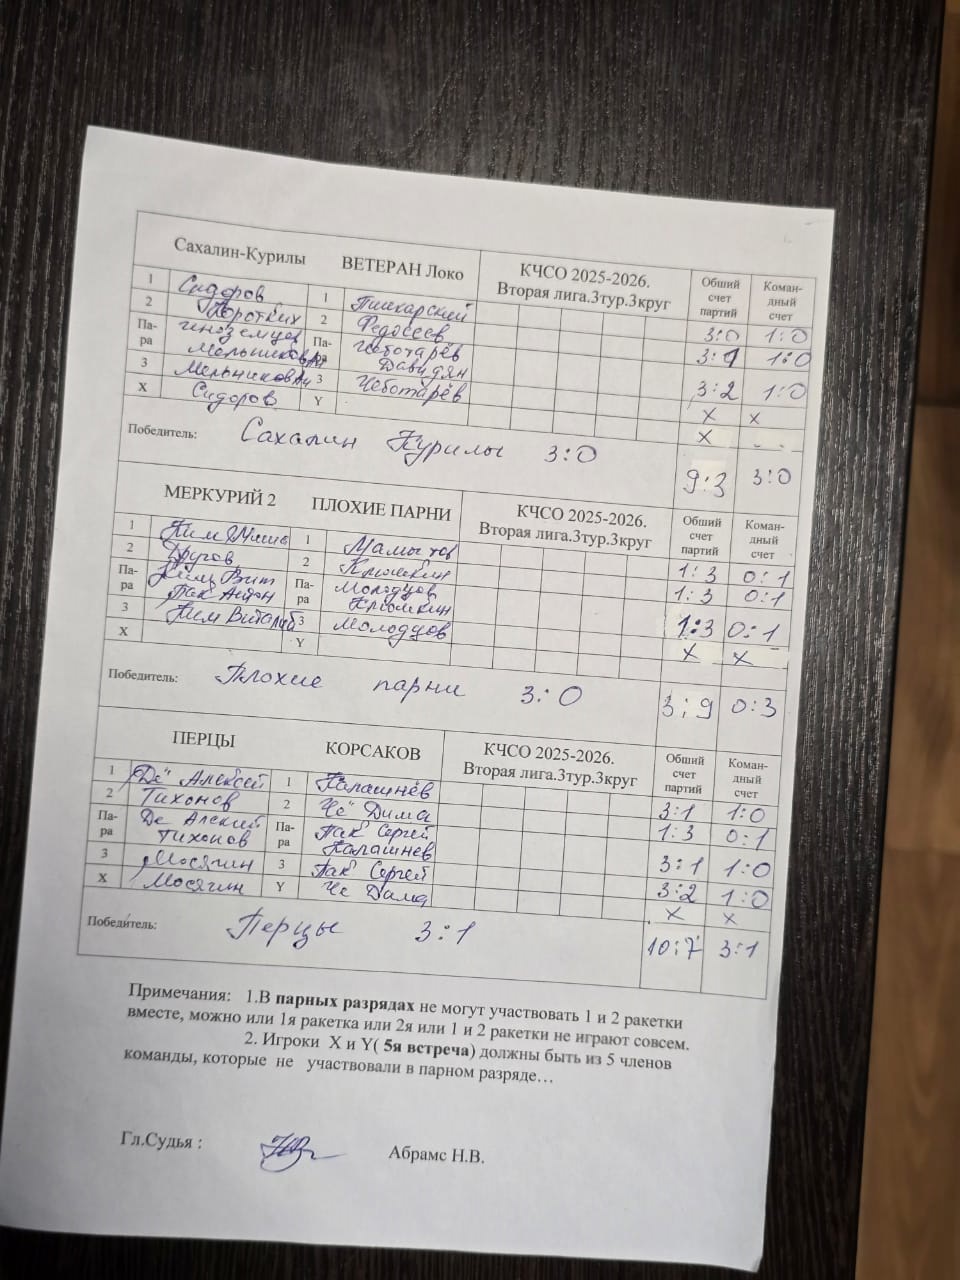 Сахалин-Курилы ВЕТЕРАН Локо КЧСО 2025-2026. Вторая лига.3тур.3круг Обший счет партий Коман-дный счет
1 Сидоров 1 Пшекарский 3:0 1:0
2 Коротких 2 Федосеев 3:1 1:0
Па-ра Иноземцев Мельников Па-ра Чеботарёв Давидян 3:2 1:0
3 Мельников 3 Чеботарёв X X
X Сидоров Y X - -
Победитель: Сахалин Курилы 3:0 9:3 3:0
МЕРКУРИЙ 2 ПЛОХИЕ ПАРНИ КЧСО 2025-2026. Вторая лига.3тур.3круг Обший счет партий Коман-дный счет
1 Ким 1 1:3 0:1
2 Другов 2 Крюмкин 1:3 0:1
Па-ра Ким Вит Пак Антон Па-ра Молодцов Крюмкин 1:3 0:1
3 Ким Виталий 3 Молодцов X X
X Y
Победитель: Плохие парни 3:0 3:9 0:3
ПЕРЦЫ КОРСАКОВ КЧСО 2025-2026. Вторая лига.3тур.3круг Обший счет партий Коман-дный счет
1 Де Алексей 1 Калашнёв 3:1 1:0
2 Тихонов 2 Че Дима 1:3 0:1
Па-ра Де Алексей Тихонов Па-ра Пак Сергей Калашнев 3:1 1:0
3 Мосягин 3 Пак Сергей 3:2 1:0
X Мосягин Y Че Дима X X
Победитель: Перцы 3:1 10:7 3:1
Примечания: 1.В парных разрядах не могут участвовать 1 и 2 ракетки
вместе, можно или 1я ракетка или 2я или 1 и 2 ракетки не играют совсем.
2. Игроки X и Y( 5я встреча) должны быть из 5 членов
команды, которые не участвовали в парном разряде…
Гл.Судья : Абрамс Н.В.